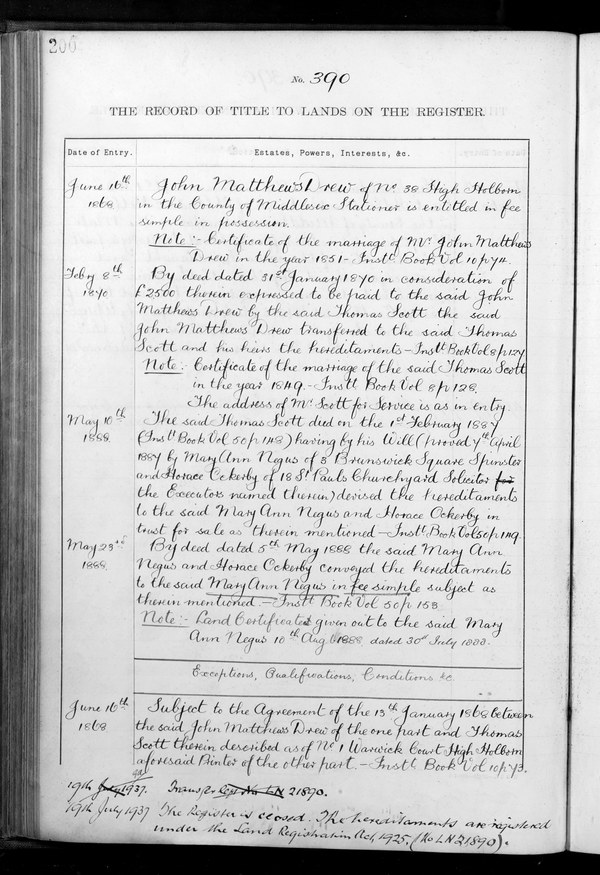 200
No. 390
THE RECORD OF TITLE TO LANDS ON THE REGISTER
Date of Entry.
Estates, Powers, Interests, &c.
June 16th 1868
John Matthews Drew of No. 38 High Holborn
in the County of Middlesex Stationer is entitled in fee
simple in possession.
Note :- Certificate of the marriage of Mr. John Matthews
Drew in the year 1851 - Instt. Book Vol 10 p 74.
Feby 8th 1870
By deed dated 31st January 1870 in consideration of
£2500 therein expressed to be paid to the said John
Matthews Drew by the said Thomas Scott the said
John Matthews Drew transferred to the said Thomas
Scott and his heirs the hereditaments - Instt. Book Vol 8 p 127
Note :- Certificate of the marriage of the said Thomas Scott
in the year 1849. - Instt Book Vol 8 p 128.
The address of Mr. Scott for Service is as in entry.
May 10th 1888.
The said Thomas Scott died on the 1st February 1887
(Instt. Book Vol 50 p 148) having by his Will (proved 7th April
1887 by Mary Ann Negus of 3 Brunswick Square Spinster
and Horace Ockerby of 18 St. Pauls Churchyard Solicitor for
the Executors named therein) devised the hereditaments
to the said Mary Ann Negus and Horace Ockerby in
trust for sale as therein mentioned - Instt. Book Vol 50 p 149.
May 23rd 1888.
By deed dated 5th May 1888 the said Mary Ann
Negus and Horace Ockerby conveyed the hereditaments
to the said Mary Ann Negus in fee simple subject as
therein mentioned. - Instt Book Vol 50 p 153.
Note :- Land Certificate given out to the said Mary
Ann Negus 10th Aug 1888 dated 30th July 1888.
Exceptions, Qualifications, Conditions &c
June 16th 1868
Subject to the Agreement of the 13th January 1868 between
the said John Matthews Drew of the one part and Thomas
Scott therein described as of No. 1 Warwick Court High Holborn
aforesaid Printer of the other part. - Instt. Book Vol 10 p 73.
19th July 1937. Transfer Regd No. LN 21890.
19th July 1937 The Register is closed. The hereditaments are registered
under the Land Registration Act, 1925. (No LN 21890).